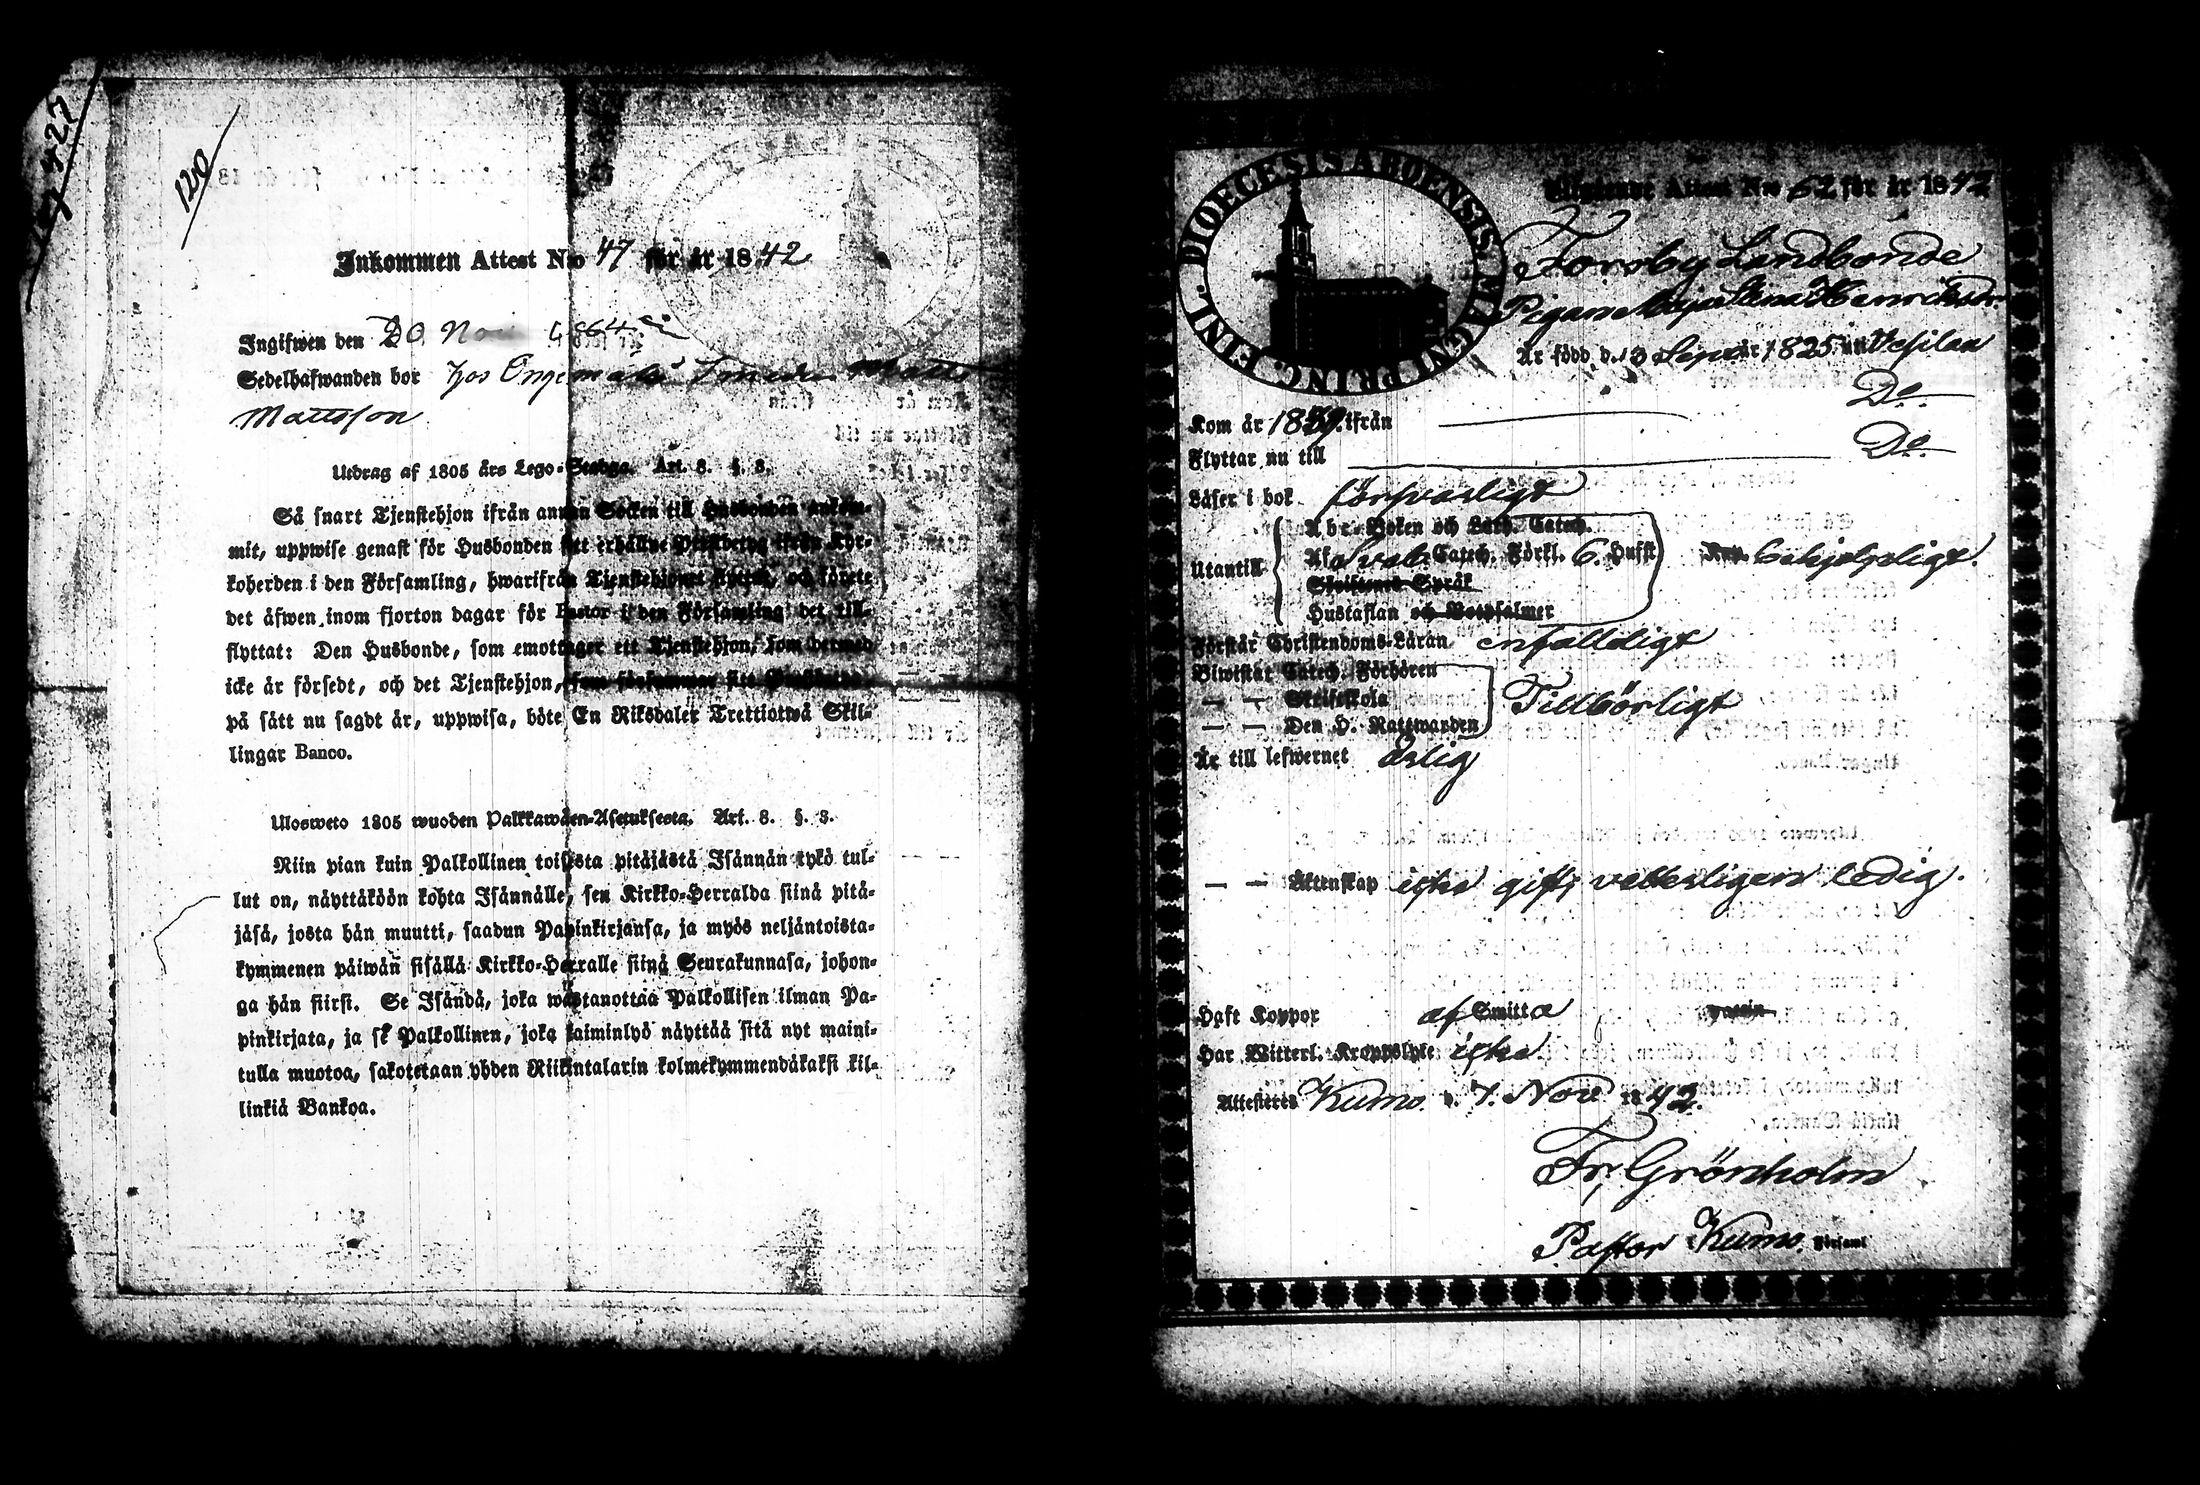 427
120
Inkommen Attest N:o 47 för år 1842
Ingifwen den 20 Nov
Sedelhafwanden bor hos
Mattsson
Utdrag af 1805 års Lego-Stadga. Art. 8. §. 8.
Så snart Tjenstehjon ifrån annan Socken till Husbonden ankom-
mit, uppwise genast för Husbonden sitt erhållne Prestbetyg ifrån Kyr-
koherden i den Församling, hwarifrån Tjenstehjonet flyttat, och förete
det äfwen inom fjorton dagar för Pastor i den Församling det till-
flyttat: Den Husbonde, som emottager ett Tjenstehjon, som dermed
icke är försedt, och det Tjenstehjon, som försummar sitt
på sätt nu sagdt är, uppwisa, böte En Riksdaler Trettiotwå Skil-
lingar Banco.
Ulosweto 1805 wuoden Palkkawäen-Asetuksesta. Art. 8. §. 8.
Niin pian kuin Palkollinen toisesta pitäjästä Isännän tykö tul-
lut on, näyttäköön kohta Isännälle, sen Kirkko-Herralda siinä pitä-
jäsä, josta hän muutti, saadun Papinkirjansa, ja myös neljäntoista-
kymmenen päiwän sisällä Kirkko-Herralle siinä Seurakunnasa, johon-
ga hän siirsi. Se Isändä, joka wastanottaa Palkollisen ilman Pa-
pinkirjata, ja se Palkollinen, joka laiminlyö näyttää sitä nyt maini-
tulla muotoa, sakotetaan yhden Riikintalarin kolmekymmendäkaksi kil-
linkiä Bankoa.
DIOECESIS ABOENSIS MAGNI PRINC. FINL.
Utgående Attest N:o 62 för år 1842
Forsby Landbonde
Pigan Maja Stina Henricksdr.
Är född d. 13 Sept år 1825 i Vesilax
Kom år ifrån Do.
Flyttar nu till Do.
Läser i bok försvarligt
Utantill
Abc-Boken och Luth. Catech.
Af Sveb. Catech. Förkl. 6. Hufst begripeligt.
Skriftenes Språk
Hustaflan och Botpsalmer
Förstår Christendoms-Läran enfalldigt
Biwistår Catech. Förhören
— — Skriftskola Tillbörligt
— — Den H. Nattwarden
Är till lefwernet ärlig
— — Äktenskap icke gift, vetterligen ledig.
Haft Koppor af Smitta vaccin
Har Witterl. Kroppslyte icke
Attesteras Kumo. d. 7. Nov 1842.
Fr. Grönholm
Pastor Kumo. Församl